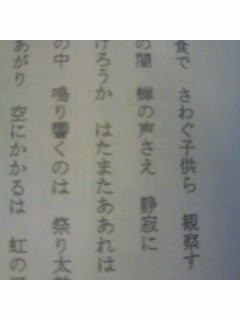 食で さわぐ子供ら 観察す
の闇 蝉の声さえ 静寂に
げろうか はたまたあれは
の中 鳴り響くのは 祭り太
あがり 空にかかるは 虹の